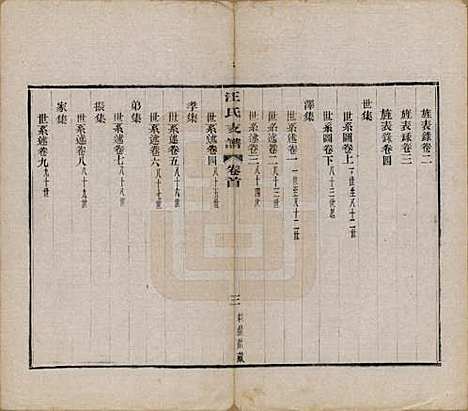 旌表錄卷二
旌表錄卷三
旌表錄卷四
世集
世系圖卷上一世至八十二世
世系圖卷下八十三世起
澤集
世系述卷一一世至八十二世
世系述卷二八十三世
世系述卷三八十四世
汪氏支譜
卷首
三
孝集
世系述卷四八十五世
世系述卷五八十六世
弟集
世系述卷六八十七世
世系述卷七八十八世
振集
世系述卷八八十九世
家集
世系述卷九九十世